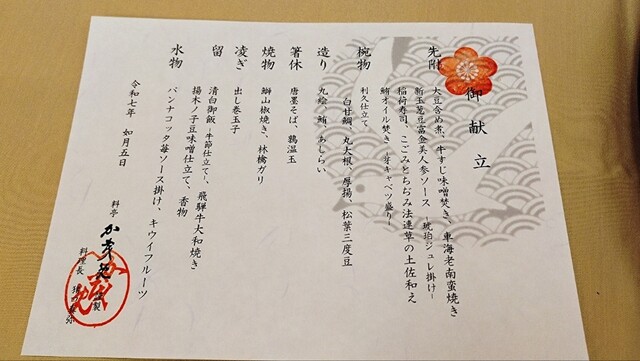 御献立
先附
大豆含め煮、牛すじ味噌焚き、車海老南蛮焼き
新玉葱豆富金美人参ソース −琥珀ジュレ掛け−
稲荷寿司、こごみとちぢみ法連草の土佐和え
鮪オイル焚き −芽キャベツ盛り−
椀物
利久仕立て
白甘鯛、丸大根、厚揚、松葉三度豆
造り
九絵、鮪、あしらい
箸休
唐墨そば、鶉温玉
焼物
鰤山椒焼き、林檎ガリ
凌ぎ
出し巻玉子
留
清白御飯 −牛節仕立て−、飛騨牛大和焼き
揚木ノ子豆味噌仕立て、香物
水物
パンナコッタ苺ソース掛け、キウイフルーツ
令和七年 如月五日
料亭
料理長